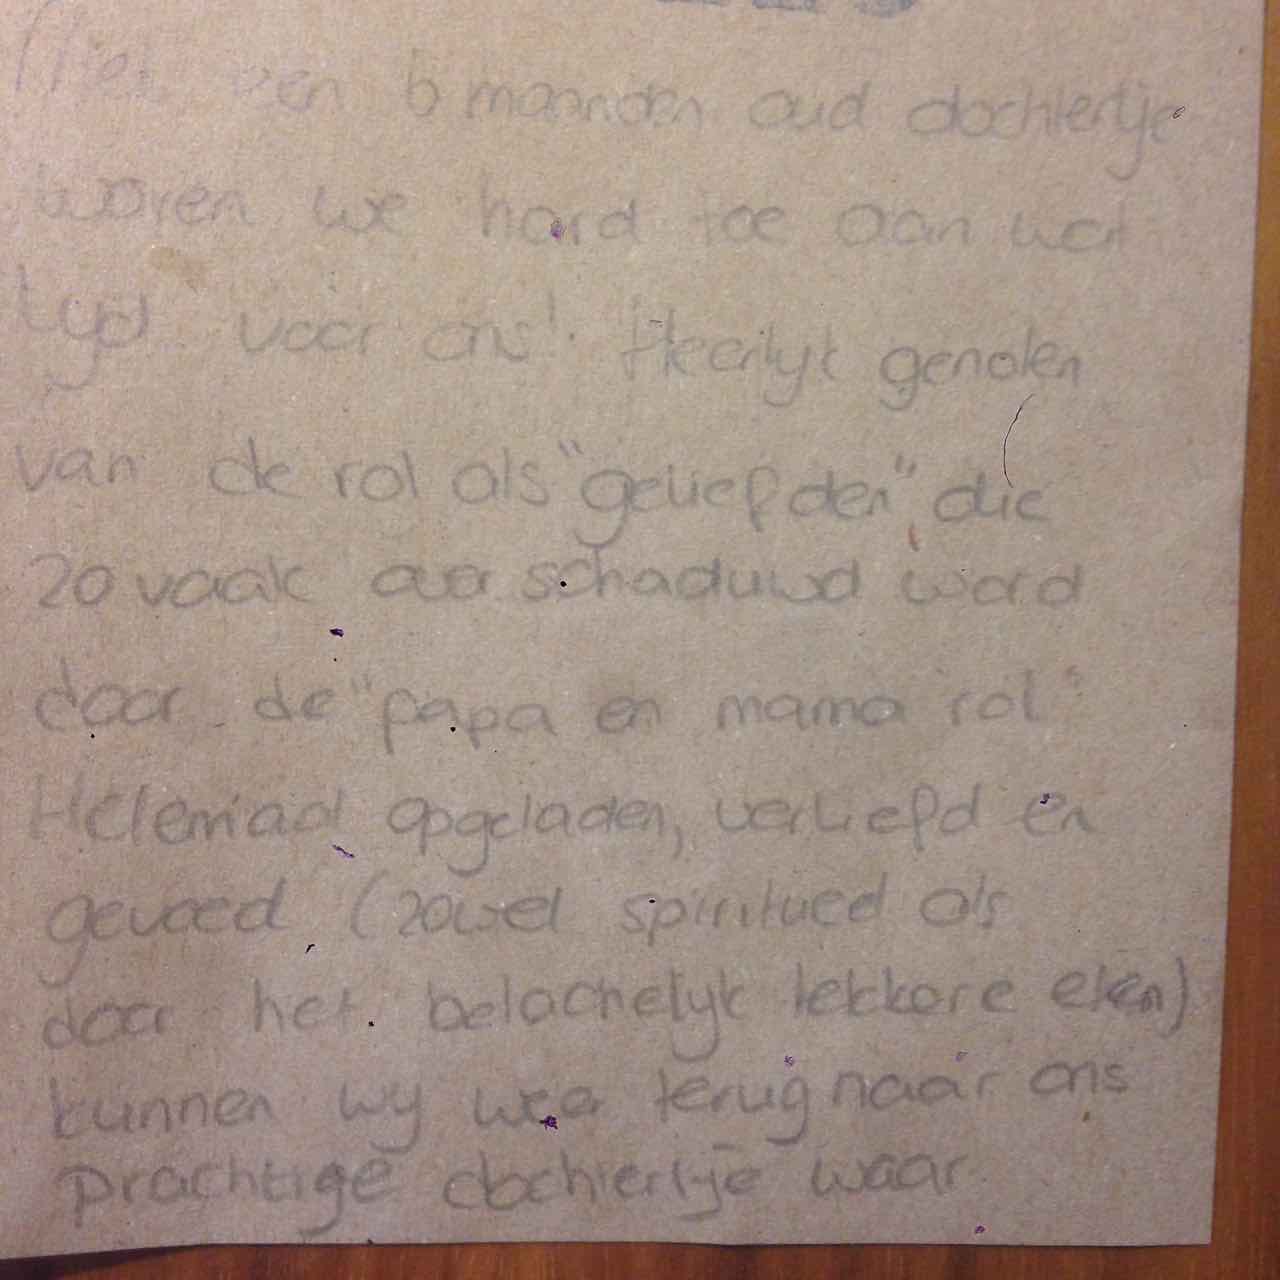 Met een 6 maanden oud dochtertje
waren we hard toe aan wat
tijd voor ons! Heerlijk genoten
van de rol als "geliefden" die
zo vaak overschaduwd word
door de "papa en mama rol"
Helemaal opgeladen, verliefd en
gevoed (zowel spiritueel als
door het belachelijk lekkere eten)
kunnen wij weer terug naar ons
prachtige dochtertje waar